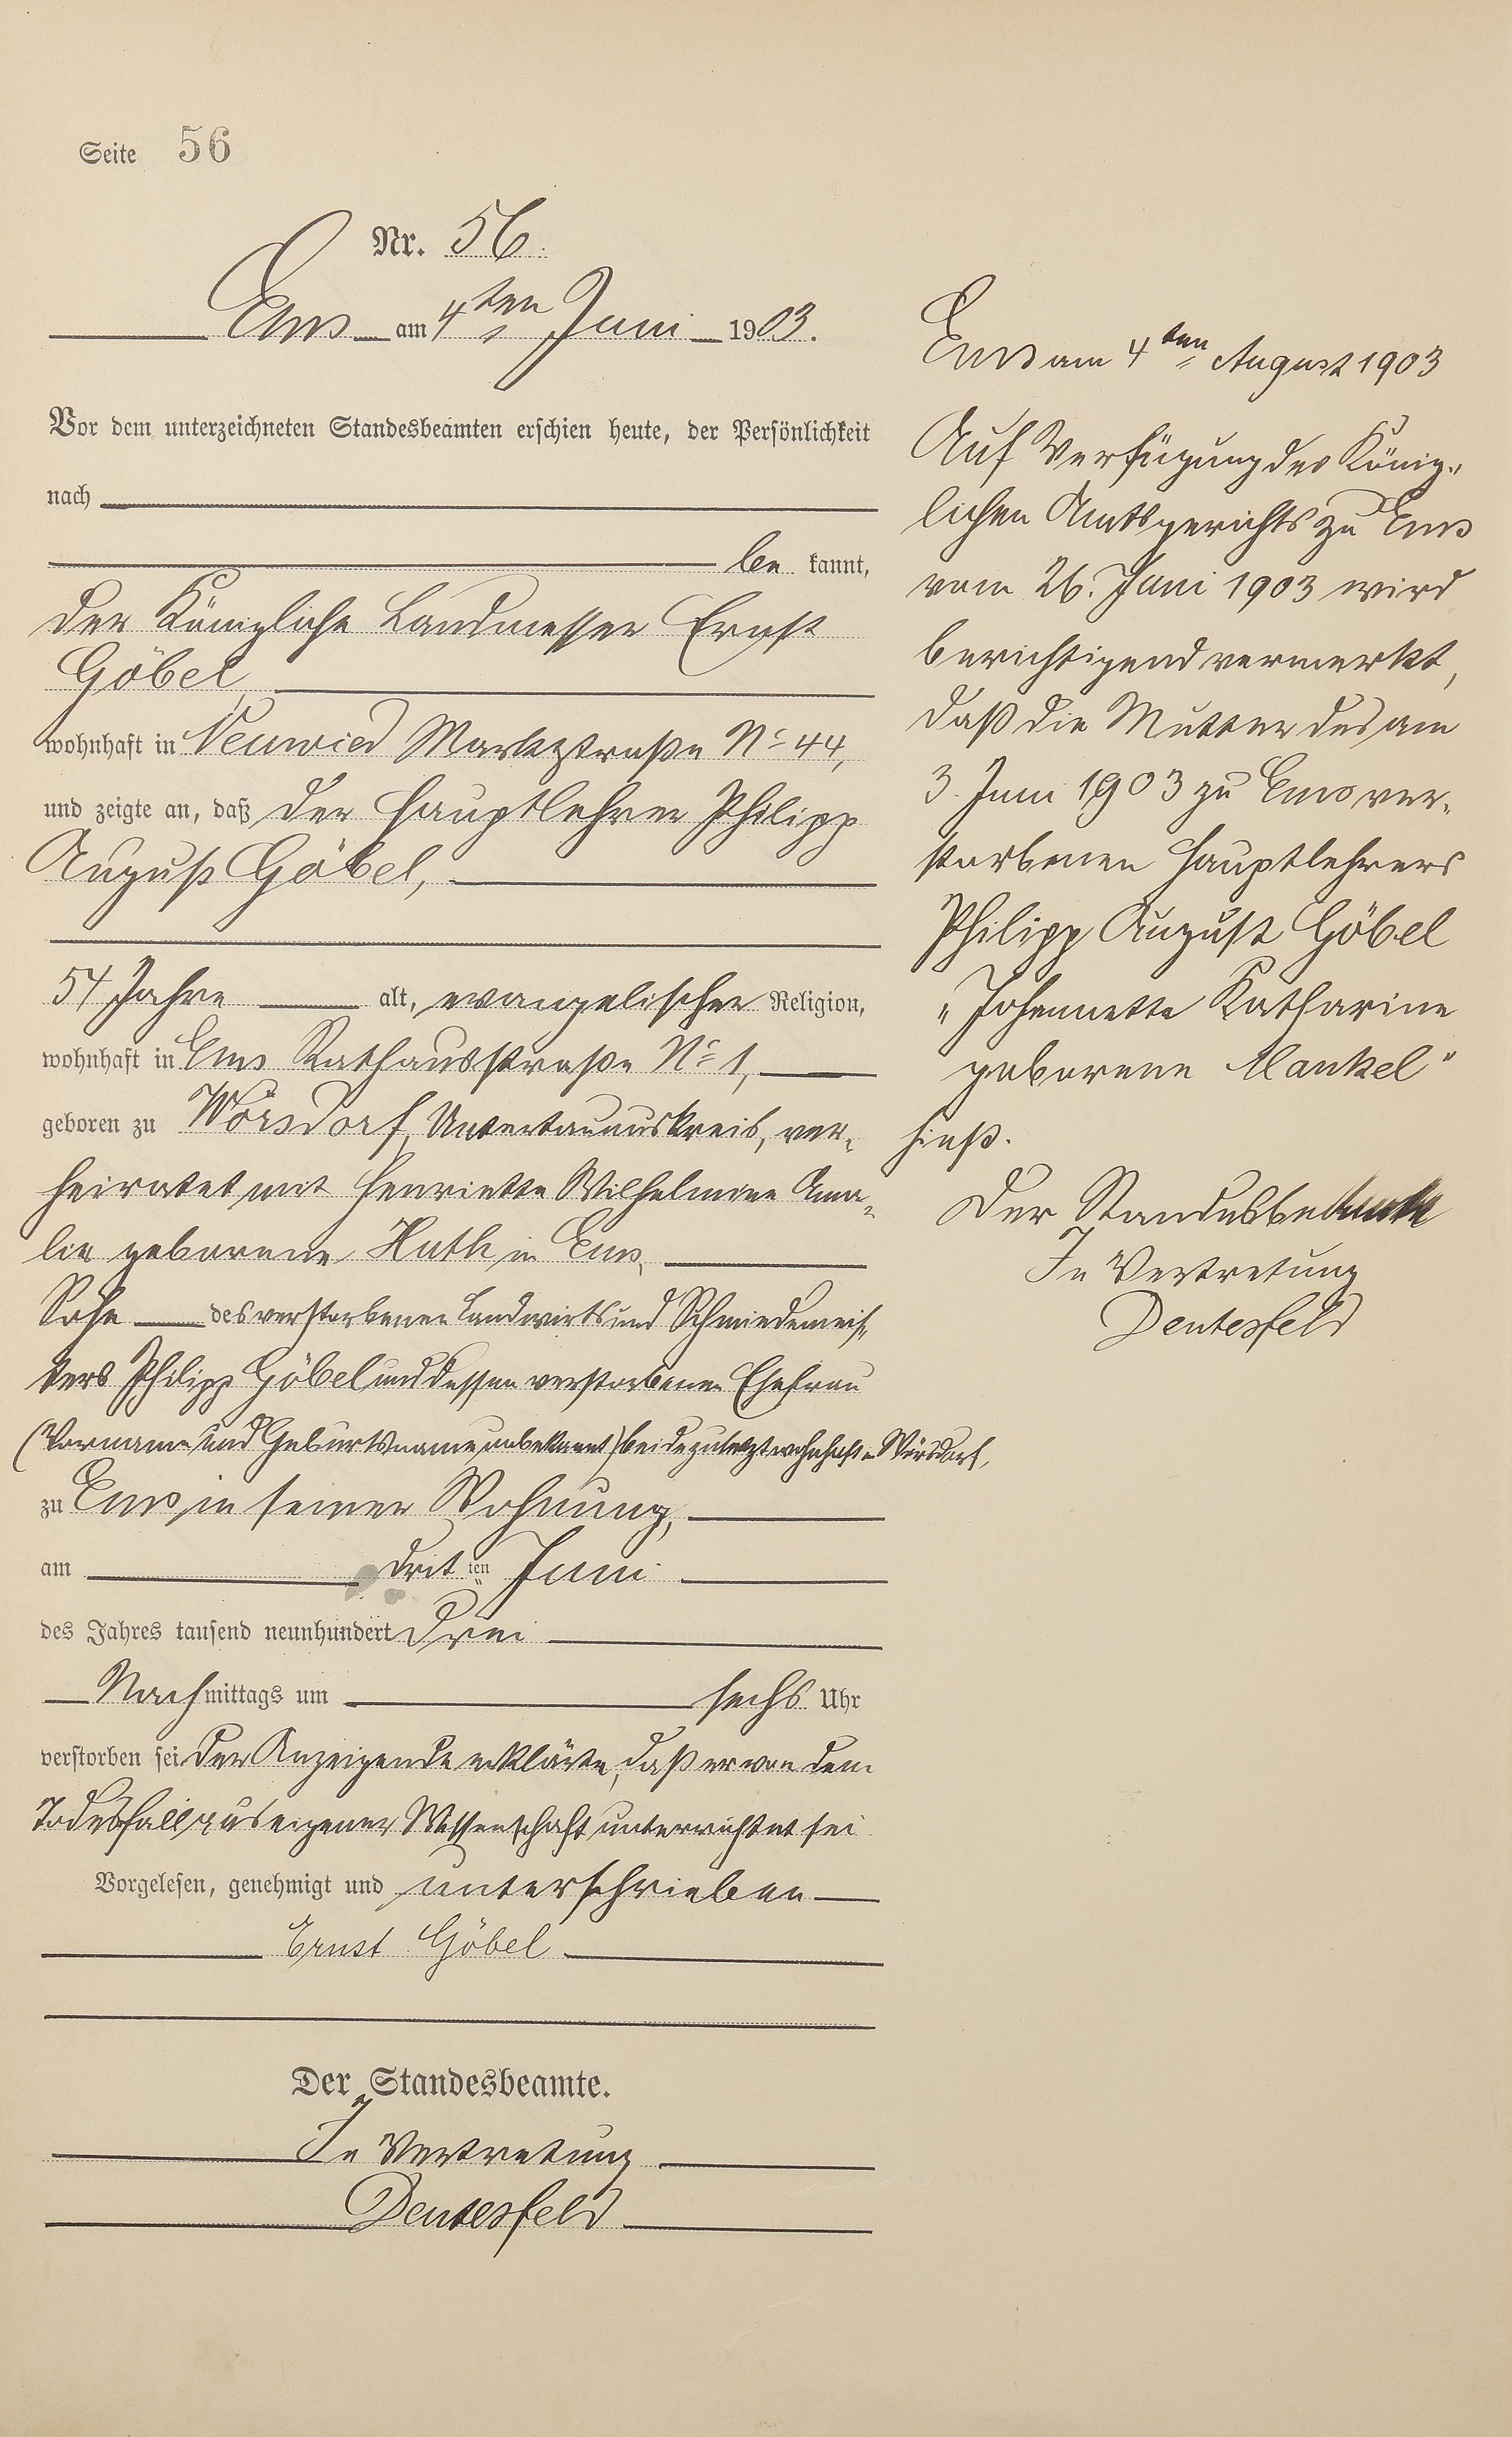 Seite 56
Nr. 56.
Ems am 4ten Juni 1903.
Vor dem unterzeichneten Standesbeamten erschien heute, der Persönlichkeit
nach
be kannt,
der Königliche Landmesser Ernst
Göbel,
wohnhaft in Neuwied Marktstraße No 44,
und zeigte an, daß der Hauptlehrer Philipp
August Göbel,
54 Jahre alt, evangelischer Religion,
wohnhaft in Ems Rathausstraße No 1,
geboren zu Wörsdorf, Untertaunuskreis, ver-
heiratet mit Henriette Wilhelmine Ama-
lie geborene Huth in Ems,
Sohn des verstorbenen Landwirts und Schmiedemeis-
ters Philipp Göbel und dessen verstorbenen Ehefrau
(Vorname und Geburtsname unbekannt) beide zuletzt wohnhaft in Wörsdorf,
zu Ems, in seiner Wohnung,
am drit ten Juni
des Jahres tausend neunhundert drei
Nachmittags um sechs Uhr
verstorben sei. Der Anzeigende erklärte, daß er von dem
Todesfall aus eigener Wissenschaft unterrichtet sei.
Vorgelesen, genehmigt und unterschrieben
Ernst Göbel
Der Standesbeamte.
In Vertretung
Deutesfeld
Ems am 4ten August 1903
Auf Verfügung des König-
lichen Amtsgerichts zu Ems
vom 26. Juni 1903 wird
berichtigend vermerkt,
daß die Mutter des am
3. Juni 1903 zu Ems ver-
storbenen Hauptlehrers
Philipp August Göbel
„Johannette Katharine
geborene Mankel"
hieß.
Der Standesbeamte
In Vertretung
Deutesfeld